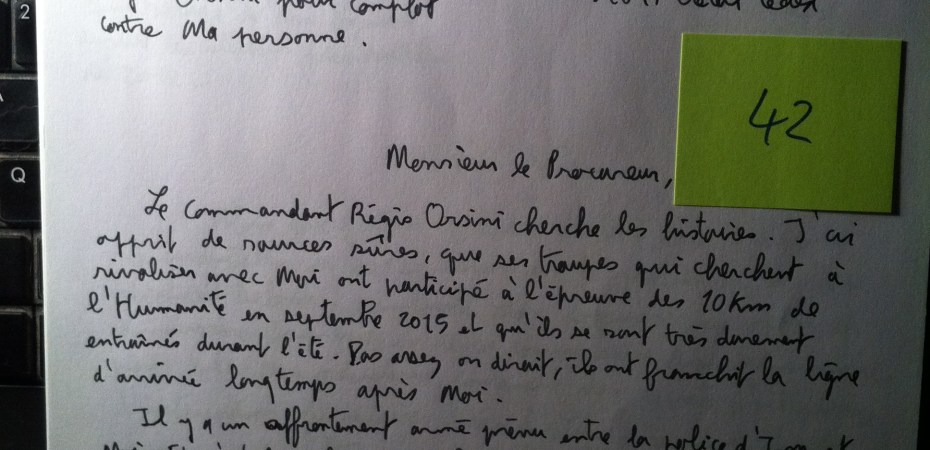 pour complot
contre Ma personne.
42
Monsieur le Procureur,
Le Commandant Régis Orsini cherche les histoires. J'ai
apprit de sources sûres, que ses troupes qui cherchent à
rivaliser avec Moi ont participé à l'épreuve des 10Km de
l'Humanité en septembre 2015 et qu'ils se sont très durement
entraînés durant l'été. Pas assez on dirait, ils ont franchit la ligne
d'arrivée longtemps après Moi.
Il y a un affrontement armé prévu entre la police d'
2
Q